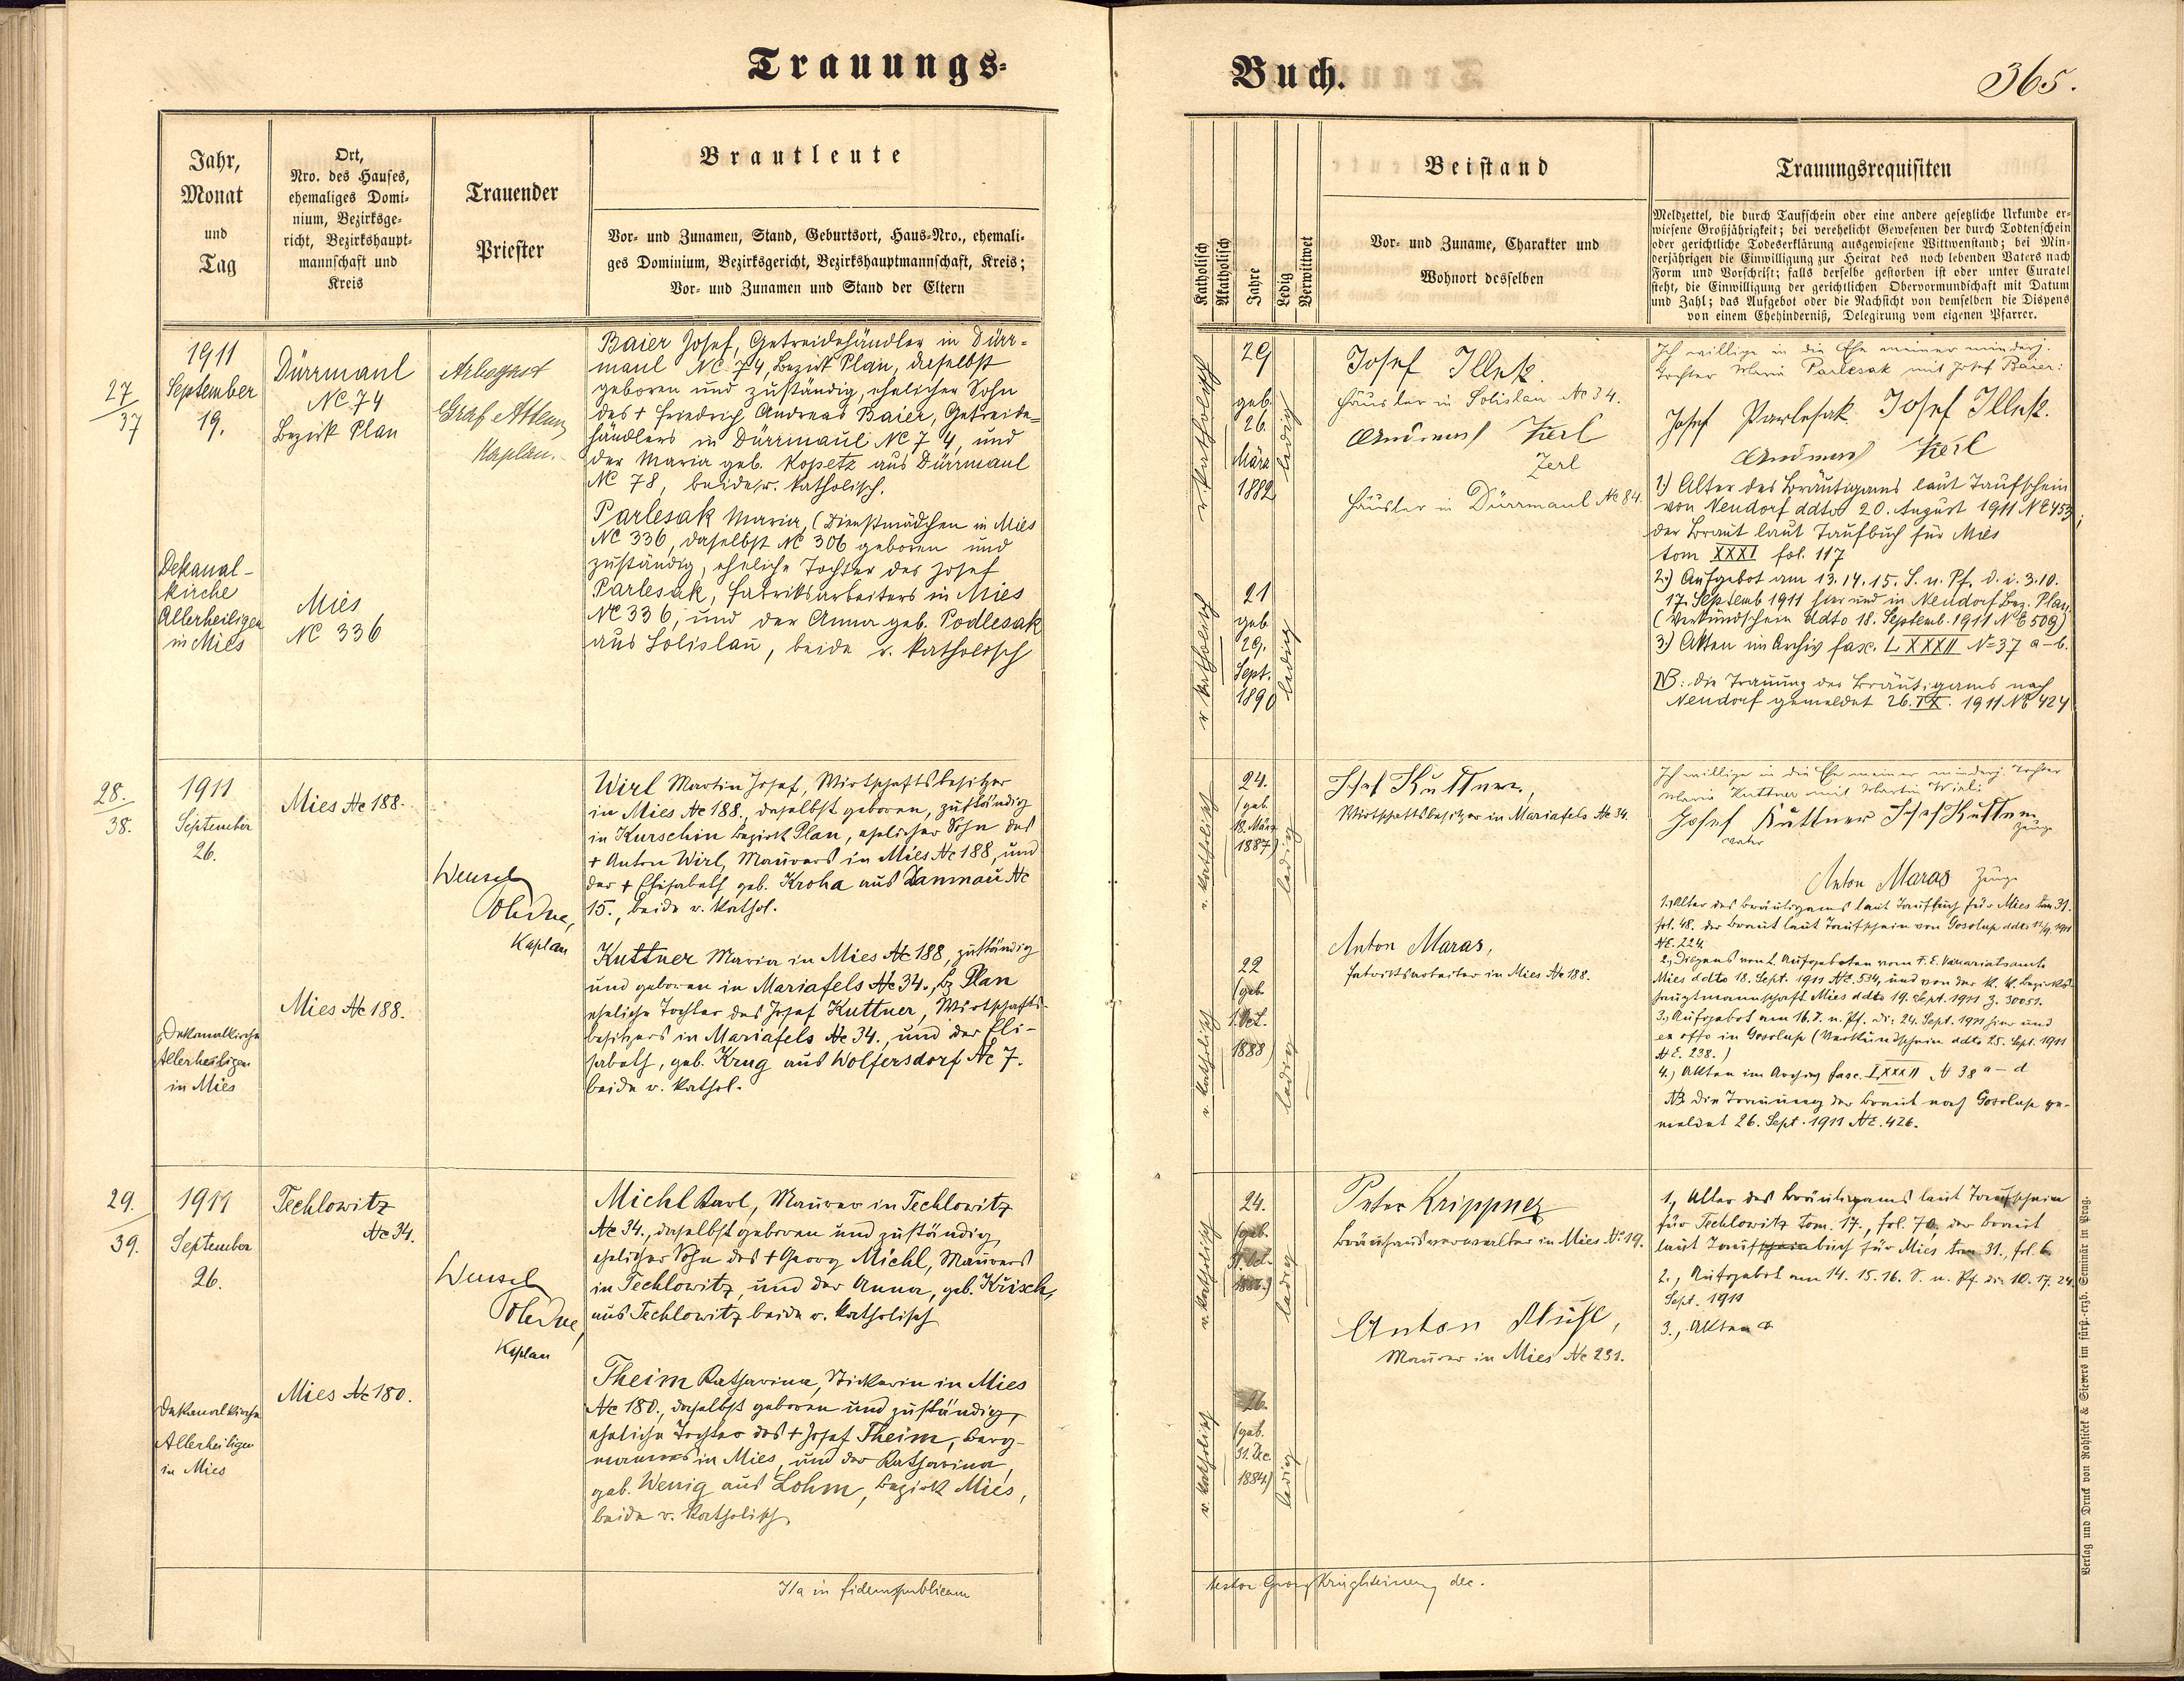 Trauungs-
Buch.
365.
Jahr,
Monat
und
Tag
Ort,
Nro. des Hauses,
ehemaliges Domi-
nium, Bezirksge-
richt, Bezirkshaupt-
mannschaft und
Kreis
Trauender
Priester
Brautleute
Vor- und Zunamen, Stand, Geburtsort, Haus-Nro., ehemali-
ges Dominium, Bezirksgericht, Bezirkshauptmannschaft, Kreis;
Vor- und Zunamen und Stand der Eltern
Katholisch
Akatholisch
Jahre
Ledig
Verwittwet
Beistand
Vor- und Zuname, Charakter und
Wohnort desselben
Trauungsrequisiten
Meldzettel, die durch Taufschein oder eine andere gesetzliche Urkunde er-
wiesene Großjährigkeit; bei verehelicht Gewesenen der durch Todtenschein
oder gerichtliche Todeserklärung ausgewiesene Wittwenstand; bei Min-
derjährigen die Einwilligung zur Heirat des noch lebenden Vaters nach
Form und Vorschrift; falls derselbe gestorben ist oder unter Curatel
steht, die Einwilligung der gerichtlichen Obervormundschaft mit Datum
und Zahl; das Aufgebot oder die Nachsicht von demselben die Dispens
von einem Ehehinderniß, Delegirung vom eigenen Pfarrer.
27
37
1911
September
19.
Dekanal-
kirche
Allerheiligen
in Mies
Dürrmaul
NC 74
Bezirk Plan
Mies
NC 336
Arbogast
Graf Attems
Kaplan.
Baier Josef, Getreidehändler in Dürr-
maul NC 74, Bezirk Plan, daselbst
geboren und zuständig, ehelicher Sohn
des + Friedrich Andreas Baier, Getreide-
händlers in Dürrmaul NC 74, und
der Maria geb. Kopetz aus Dürrmaul
NC 78, beide r. katholisch.
Parlesak Maria, (Dienstmädchen in Mies
NC 336, daselbst NC 306 geboren und
zuständig, eheliche Tochter des Josef
Parlesak, Fabriksarbeiters in Mies
NC 336, und der Anna geb. Podlesak
aus Solislau, beide r. katholisch
r. katholisch
29
geb.
26.
März
1882
ledig
r. katholisch
21
geb.
29.
Sept.
1890
ledig
Josef Illek.
Häusler in Solislau Nc 34.
Andreas Zerl
Zerl
Häusler in Dürrmaul Nc 84.
Ich willige in die Ehe meiner minderj.
Tochter Maria Parlesak mit Josef Baier:
Josef Parlesak Josef Illek.
Andreas Zerl
1.) Alter des Bräutigams laut Taufschein
von Neudorf ddto 20. August 1911 NE 453;
der Braut laut Taufbuch für Mies
tom XXXI fol. 117
2.) Aufgebot am 13. 14. 15. S. n. Pf. d. i. 3. 10.
17. Septemb 1911 hier und in Neudorf Bez. Plan.
(Verkündschein ddto 18. Septemb. 1911 NE 509)
3.) Akten im Archiv fasc. LXXXII N=37 a-b.
NB: die Trauung des Bräutigams nach
Neudorf gemeldet 26. IX. 1911 NE 424
28.
38.
1911
September
26.
Dekanalkirche
Allerheiligen
in Mies
Mies Nc 188.
Mies Nc 188.
Wenzel
Kaplan
Wirl Martin Josef, Wirtschaftsbesitzer
in Mies Nc 188., daselbst geboren, zuständig
in Kurschin Bezirk Plan, ehelicher Sohn des
+ Anton Wirl, Maurers in Mies Nc 188, und
der + Elisabeth geb. Kroha aus Damnau Nc
15., beide r. kathol.
Kuttner Maria in Mies Nc 188, zuständig
und geboren in Mariafels Nc 34., Bz Plan
eheliche Tochter des Josef Kuttner, Wirtschafts-
besitzers in Mariafels Nc 34., und der Eli-
sabeth, geb. Krug aus Wolfersdorf Nc 7.
beide r. kathol.
r. katholisch
24.
(geb.
18. März
1887)
ledig
r. katholisch
22
(geb.
1. Oct.
1888)
ledig
Josef Kuttner.,
Wirtschaftsbesitzer in Mariafels Nc 34.
Anton Maras,
Fabriksarbeiter in Mies Nc 188.
Ich willige in die Ehe meiner minderj. Tochter
Maria Kuttner mit Martin Wirl:
Josef Kuttner Josef Kuttner
Vater Zeuge
Anton Maras Zeuge
1., Alter des Bräutigams laut Taufbuch für Mies tom 31.
fol. 48. der Braut laut Taufschein von Gosolup ddto 11/9. 1911
NE. 224.
2., Dispens von 2 Aufgeboten vom F. E. Vikariatsamte
Mies ddto 18. Sept. 1911 NE. 534, und von der k. k. Bezirks-
hauptmannschaft Mies ddto 19. Sept. 1911 Z. 30051.
3., Aufgebot am 16. S. n. Pf. d. i. 24. Sept. 1911 hier und
ex offo in Gosolup (Verkündschein ddto 25. Sept. 1911
NE. 238.)
4., Akten im Archiv fasc. LXXXII N 38 a-d
NB. Die Trauung der Braut nach Gosolup ge-
meldet 26. Sept. 1911 NE. 426.
29.
39.
1911
September
26.
Dekanalkirche
Allerheiligen
in Mies
Techlowitz
Nc 34.
Mies Nc 180.
Wenzel
Kaplan
Michl Karl, Maurer in Techlowitz
Nc 34., daselbst geboren und zuständig,
ehelicher Sohn des + Georg Michl, Maurers
in Techlowitz, und der Anna, geb. Krisch,
aus Techlowitz beide r. katholisch
Theim Katharina, Stickerin in Mies
Nc 180., daselbst geboren und zuständig,
eheliche Tochter des + Josef Theim, Berg-
mannes in Mies, und der Katharina,
geb. Wenig aus Lohm, Bezirk Mies,
beide r. katholisch.
r. katholisch
24.
(geb.
ledig
r. katholisch
26.
(geb.
31. Dec
1884)
ledig
Peter Krippner
Bräuhausverwalter in Mies Nc 19.
Anton
Maurer in Mies Nc 231.
1., Alter des Bräutigams laut Taufschein
für Techlowitz tom. 17., fol. 70, der Braut
laut Taufscheinbuch für Mies tom 31., fol. 6.
2., Aufgebot am 14. 15. 16. S. n. Pf. d. i. 10. 17. 24
Sept. 1911
3., Akten
Ita in fidem publicam
testor Georg dec.
Verlag und Druck von Rohliček & Sievers im fürst.-erzb. Seminär in Prag.